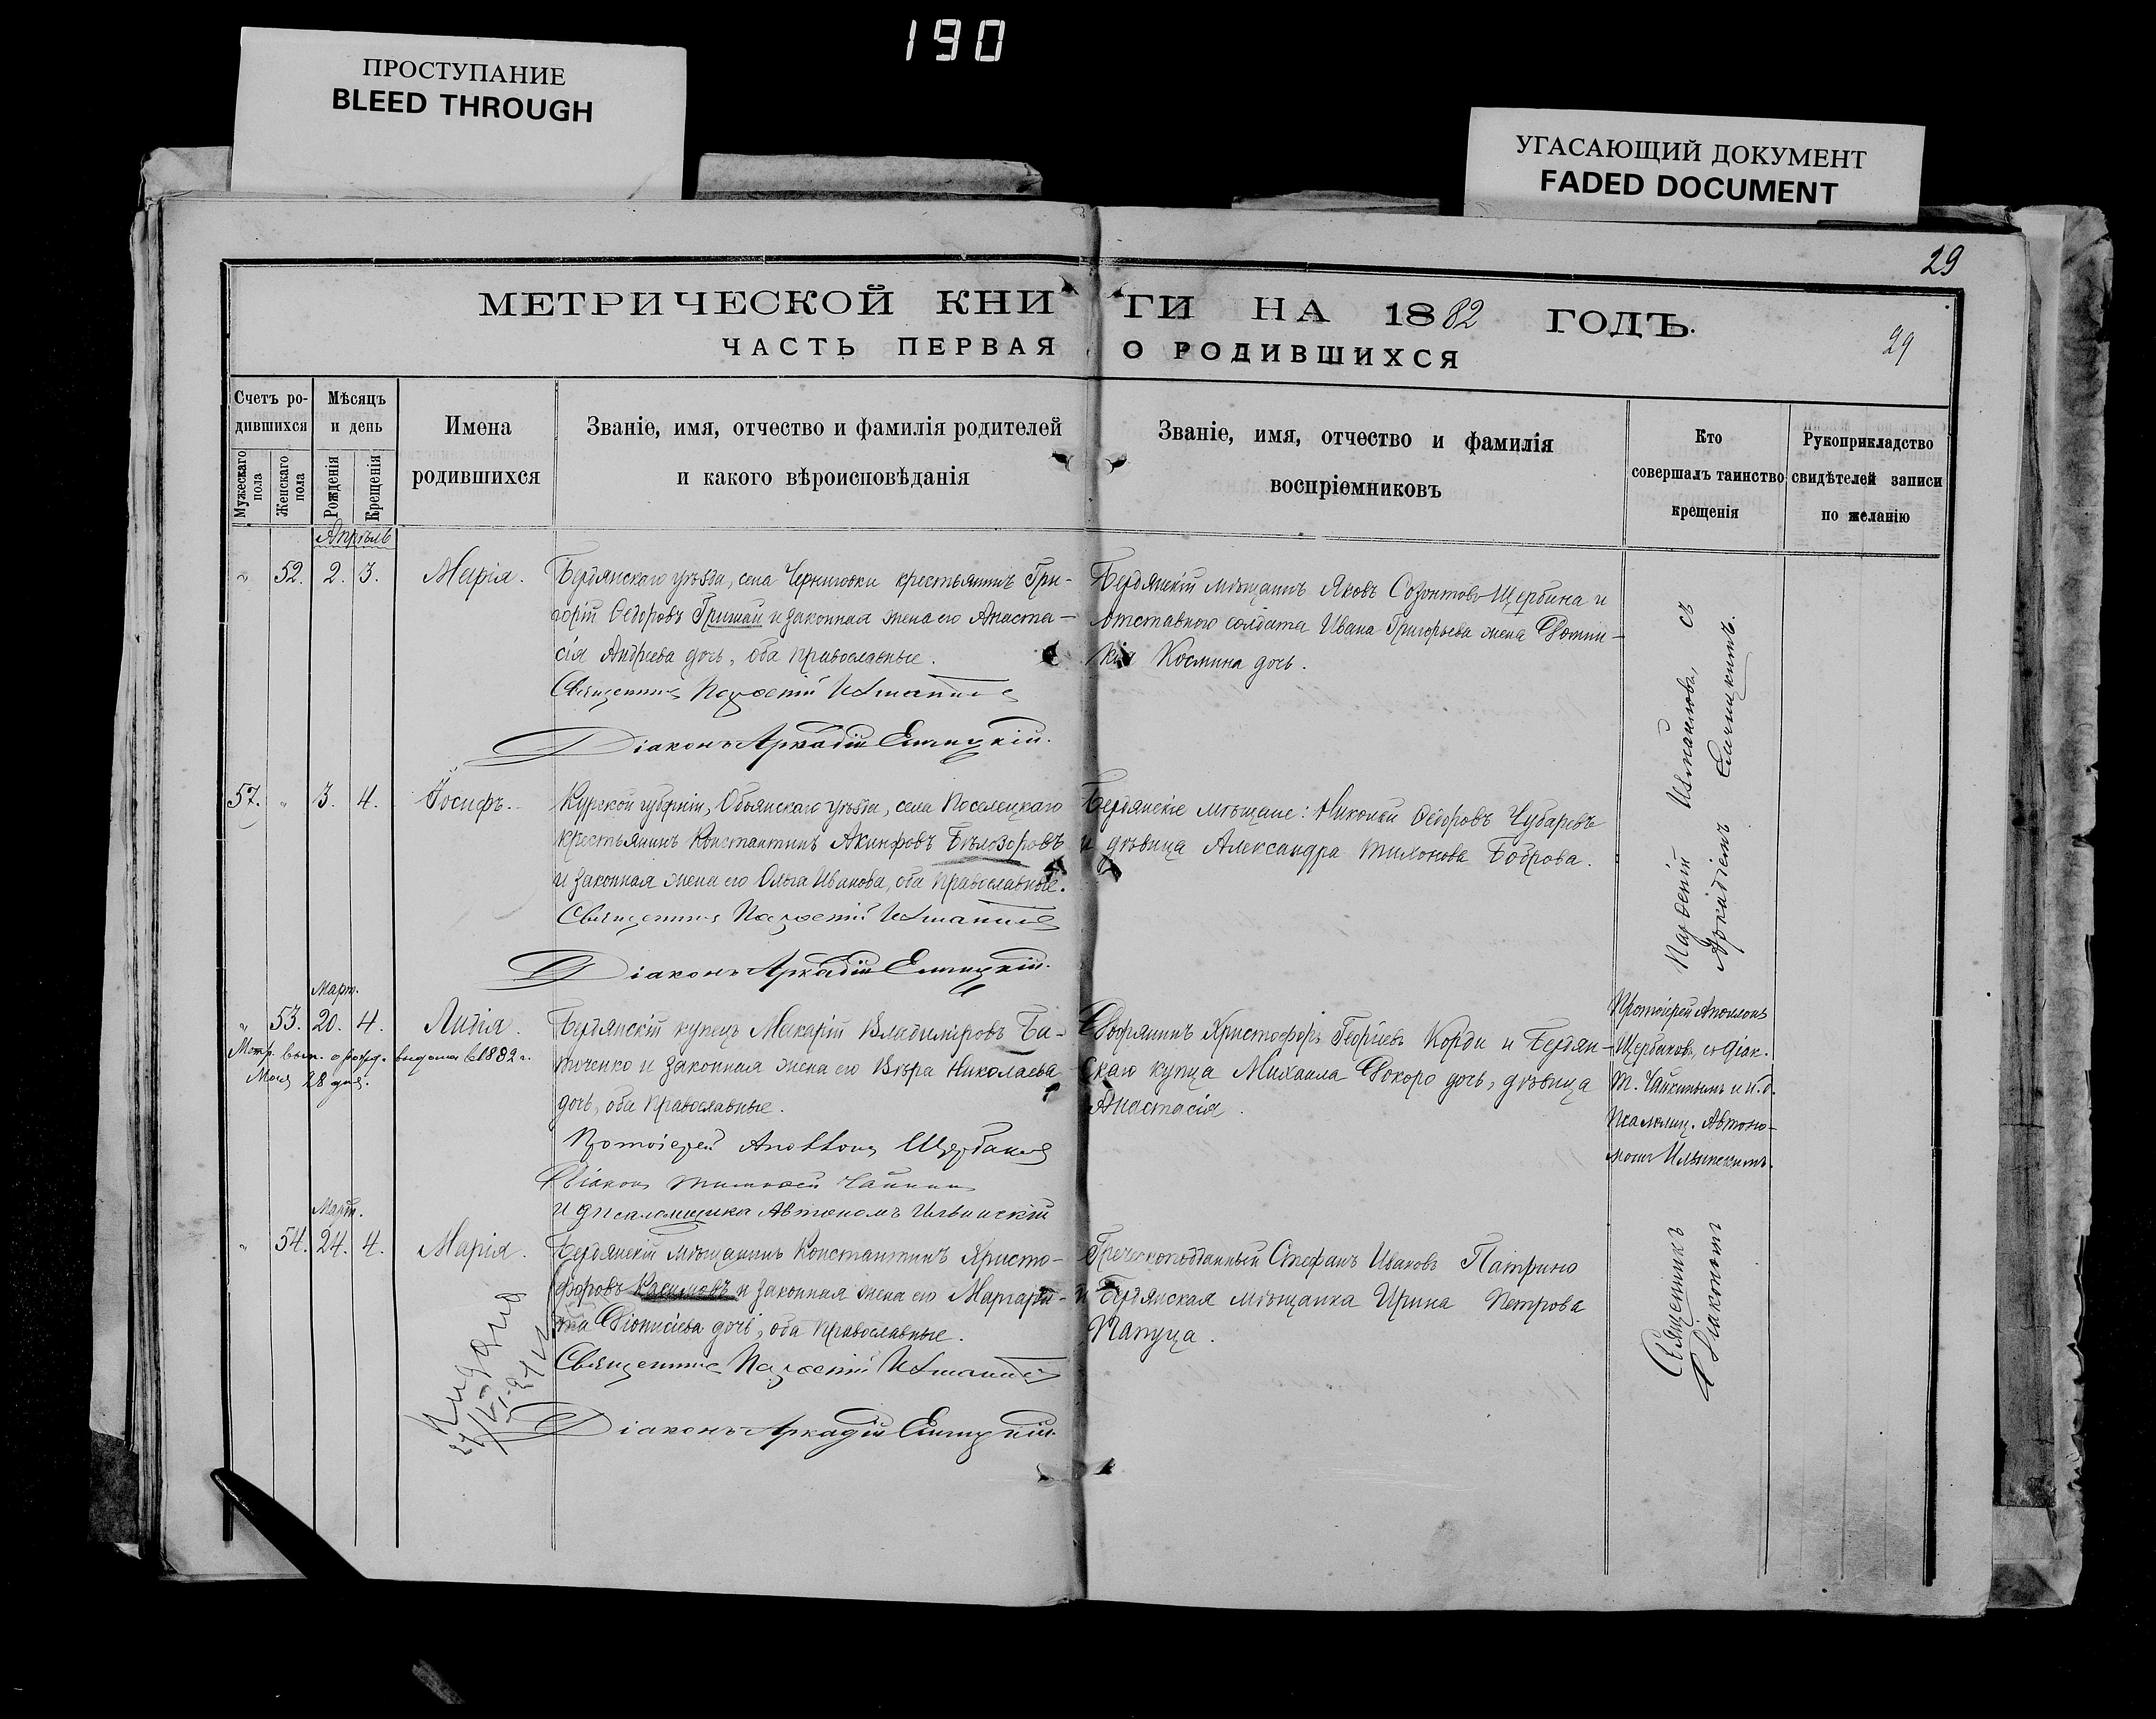 190
ПРОСТУПАНИЕ
BLEED THROUGH
УГАСАЮЩИЙ ДОКУМЕНТ
FADED DOCUMENT
29
МЕТРИЧЕСКОЙ КНИГИ НА 1882 ГОДЪ.
29
ЧАСТЬ ПЕРВАЯ О РОДИВШИХСЯ
Счетъ ро-
дившихся
Мужескаго пола
Женскаго пола
Мѣсяцъ
и день
Рожденія
Крещенія
Имена
родившихся
Званіе, имя, отчество и фамилія родителей
и какого вѣроисповѣданія
Званіе, имя, отчество и фамилія
воспріемниковъ
Кто
совершалъ таинство
крещенія
Рукоприкладство
свидѣтелей записи
по желанію
Апрѣль
" 52. 2. 3. Марія.
Бердянскаго уѣзда, села Черниговки крестьянинъ Гри-
горій Ѳедоровъ Гришай и законная жена его Анаста-
сія Андреева дочь, оба православные.
Священникъ Парѳеній
Діаконъ Аркадій
Бердянскій мѣщанинъ Яковъ Созонтовъ Щербина и
отставнаго солдата Ивана Григорьева жена Домни-
кія Космина дочь.
57. " 3. 4. Іосифъ.
Курской губерніи, Обоянскаго уѣзда, села
крестьянинъ Константинъ Акинфовъ Бѣлозоровъ
и законная жена его Ольга Иванова, оба православные.
Священникъ Парѳеній
Діаконъ Аркадій
Бердянскіе мѣщане: Николай Ѳедоровъ Чубаревъ
и дѣвица Александра Тихонова Боброва.
Март.
" 53. 20. 4. Лидія.
Метр. вып. о рожд. выдана въ 1882 г.
Мая 28 дня.
Бердянскій купецъ Макарій Владиміровъ Ба-
тиченко и законная жена его Вѣра Николаева
дочь, оба православные.
Протоіерей Аполлонъ Щербаковъ
Діаконъ Тимоѳей Чайкинъ
И д псаломщика Автономъ Ильинскій
Дворянинъ Христофоръ Георгіевъ Корди и Бердян-
скаго купца Михаила Докоро дочь, дѣвица
Анастасія.
Протоіерей Аполлонъ
Щербаковъ, съ діак.
Т. Чайкинымъ и и. д.
псаломщ. Автоно-
момъ Ильинскимъ.
Март.
" 54. 24. 4. Марія.
Бердянскій мѣщанинъ Константинъ Христо-
форовъ и законная жена его Маргари-
та Діонисіева дочь, оба православные.
Священникъ Парѳеній
Діаконъ Аркадій
Греческоподданный Стефанъ Ивановъ Патрино
и Бердянская мѣщанка Ирина Петрова
Папуца.
Священникъ Парѳеній съ
Діакономъ Аркадіемъ